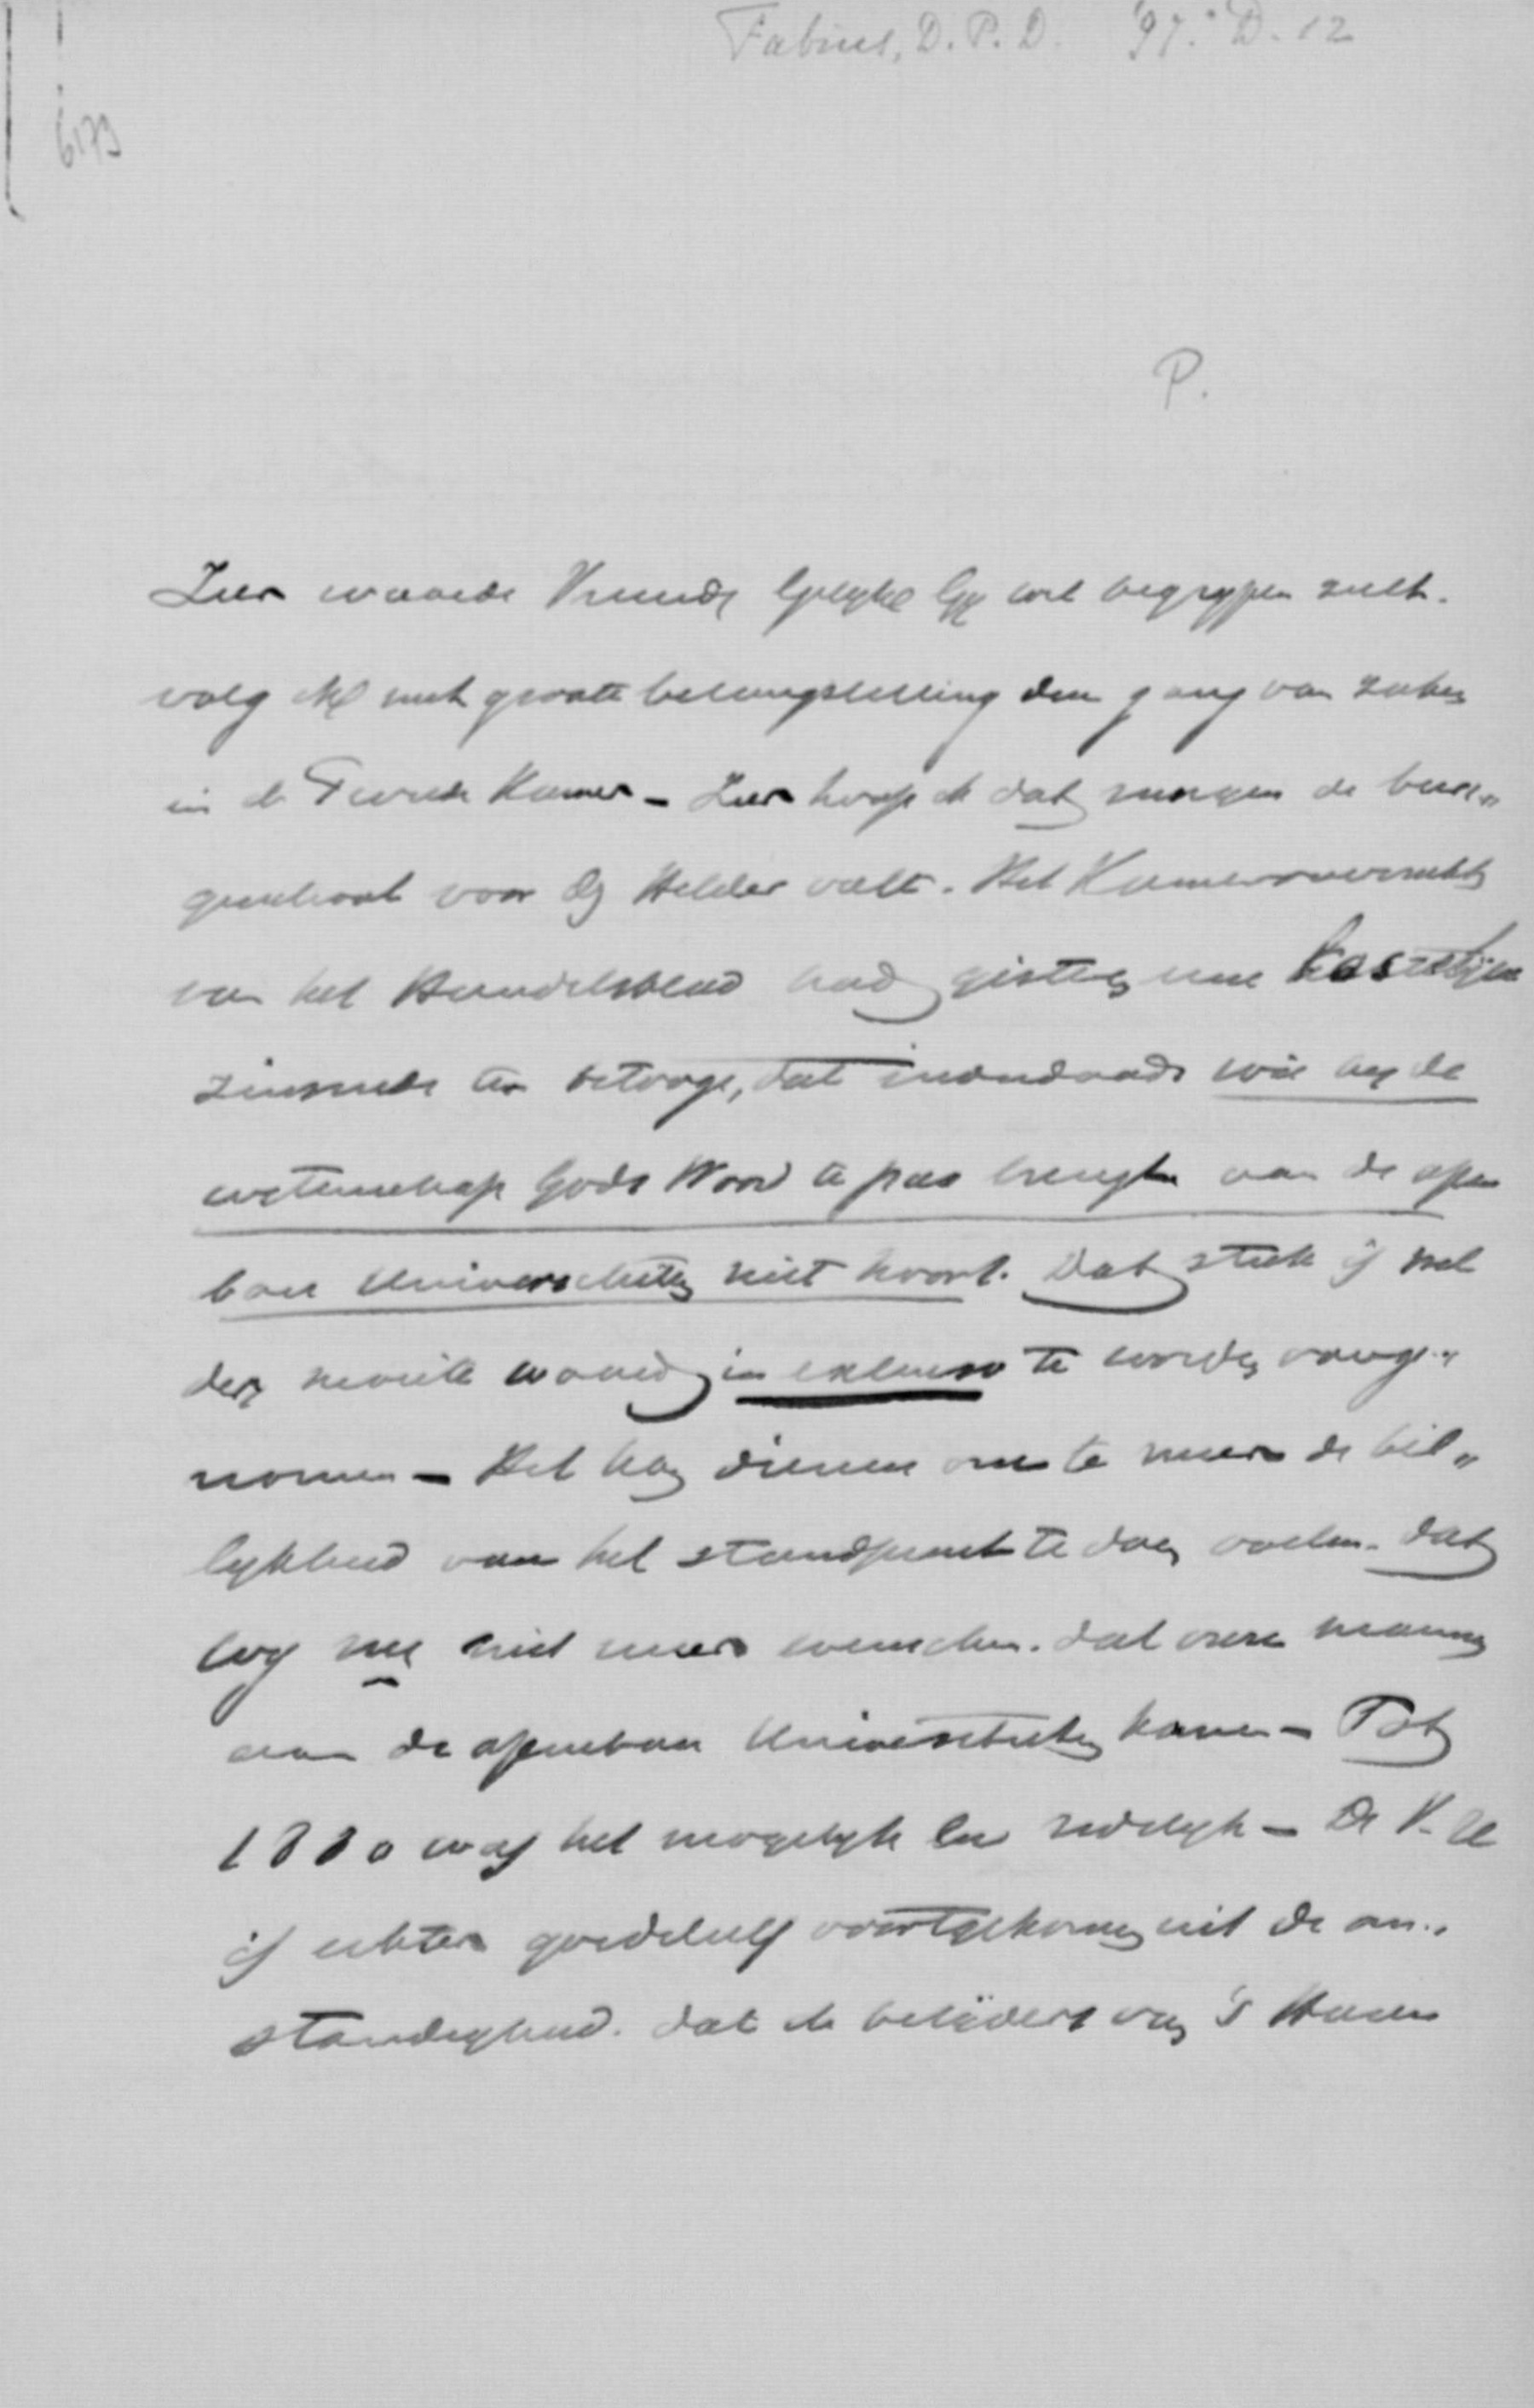 Fabius, D. P. D. '97. D. 12
6173
P.
Zeer waarde Vriend, Gelijk Gij wel begrijpen zult.
volg ik met groote belangstelling den gang van zaken
in de Tweede Kamer - Zeer hoop ik dat morgen de beur„
voor Den Helder valt. Het Kameroverzicht
van het Handelsblad had gisteren eene kostelijke
zinsnede ten betooge, dat inderdaad wie bij de
wetenschap Gods Woord te pas brengt aan de open
bare Universiteiten niet hoort. Dat stuk is wel
der moeite waard in extenso te worden overge„
nomen - Het kan dienen om te meer de bil„
lijkheid van het standpunt te doen voelen. dat
wij nu niet meer wenschen. dat onze mannen
aan de openbare Universiteiten komen - Tot
1880 was het mogelijk en redelijk - De V. U
is echter goeddeels voortgekomen uit de om„
standigheid. dat de belijders van 's Heeren